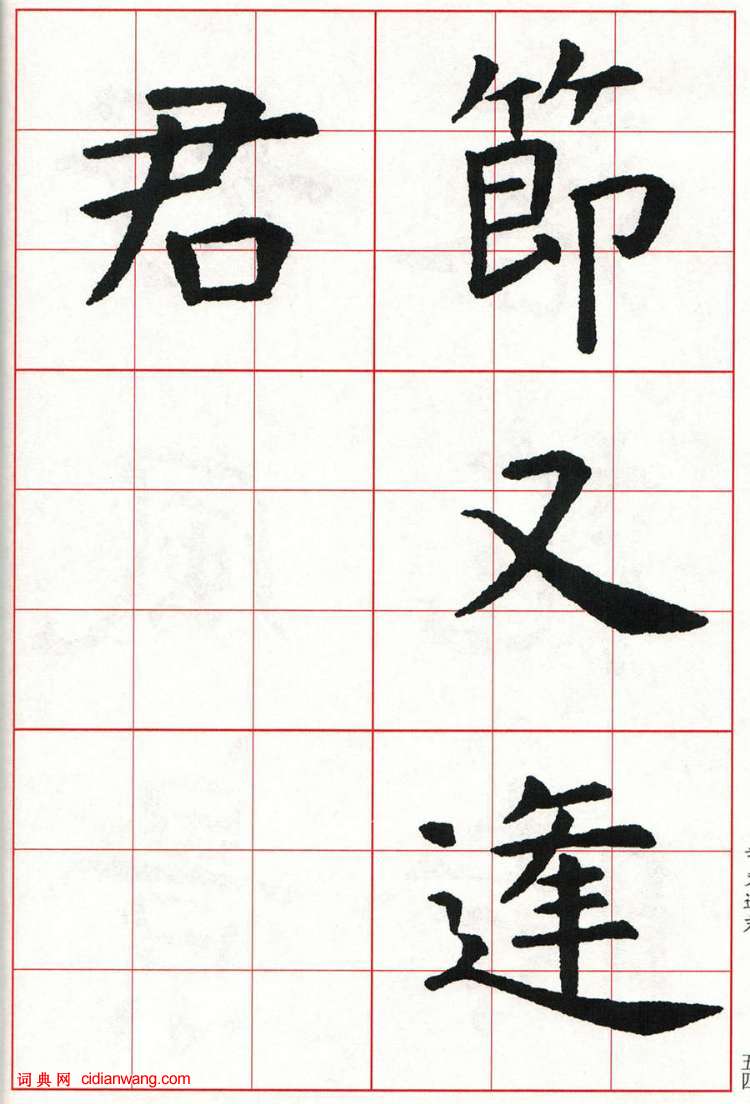 節又逢
君
五四
词典网 cidianwang.com